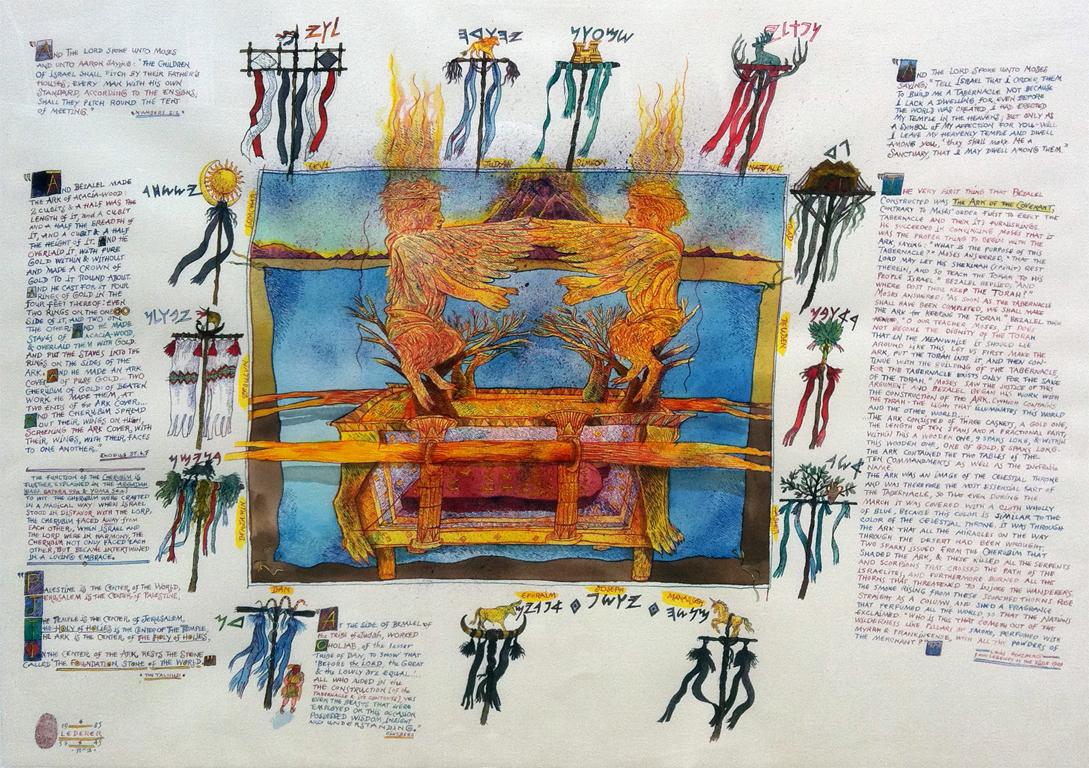 AND THE LORD SPOKE UNTO MOSES
AND UNTO AARON SAYING: "THE CHILDREN
OF ISRAEL SHALL PITCH BY THEIR FATHER'S
HOUSES; EVERY MAN WITH HIS OWN
STANDARD, ACCORDING TO THE ENSIGNS,
SHALL THEY PITCH ROUND THE TENT
OF MEETING."
NUMBERS 2:2
AND BEZALEL MADE
THE ARK OF ACACIA-WOOD:
2 CUBITS & A HALF WAS THE
LENGTH OF IT, AND A CUBIT
AND A HALF THE BREADTH OF
IT, AND A CUBIT & A HALF
THE HEIGHT OF IT. AND HE
OVERLAID IT WITH PURE
GOLD WITHIN & WITHOUT
AND MADE A CROWN OF
GOLD TO IT ROUND ABOUT.
AND HE CAST FOR IT FOUR
RINGS OF GOLD IN THE
FOUR FEET THEREOF: EVEN
TWO RINGS ON THE ONE
SIDE OF IT, AND TWO ON
THE OTHER. AND HE MADE
STAVES OF ACACIA-WOOD,
& OVERLAID THEM WITH GOLD.
AND PUT THE STAVES INTO THE
RINGS ON THE SIDES OF THE
ARK. AND HE MADE AN ARK
COVER OF PURE GOLD... TWO
CHERUBIM OF GOLD: OF BEATEN
WORK HE MADE THEM, AT
TWO ENDS OF THE ARK COVER...
AND THE CHERUBIM SPREAD
OUT THEIR WINGS ON HIGH,
SCREENING THE ARK COVER, WITH
THEIR WINGS, WITH THEIR FACES
TO ONE ANOTHER.
EXODUS 37:1-9
THE FUNCTION OF THE CHERUBIM IS
FURTHER EXPLAINED IN THE
BABA BATHRA 99a & YOMA 54a
TO WIT: THE CHERUBIM WERE CRAFTED
IN A MAGICAL WAY. WHEN ISRAEL
STOOD IN DISFAVOR WITH THE LORD,
THE CHERUBIM FACED AWAY FROM
EACH OTHER. WHEN ISRAEL AND
THE LORD WERE IN HARMONY, THE
CHERUBIM NOT ONLY FACED EACH
OTHER, BUT BECAME INTERTWINED
IN A LOVING EMBRACE.
PALESTINE IS THE CENTER OF THE WORLD,
JERUSALEM IS THE CENTER OF PALESTINE,
THE TEMPLE IS THE CENTER OF JERUSALEM,
THE HOLY OF HOLIES IS THE CENTER OF THE TEMPLE,
THE ARK IS THE CENTER OF THE HOLY OF HOLIES,
IN THE CENTER OF THE ARK, RESTS THE STONE
CALLED "THE FOUNDATION STONE OF THE WORLD."
THE TALMUD
LEDERER
LEVI
JUDAH
SIMEON
NAFTALI
BENJAMIN
DAN
EPHRAIM
JOSEPH
MANASSEH
AT THE SIDE OF BEZALEL OF
THE TRIBE OF JUDAH, WORKED
OHOLIAB, OF THE LESSER
TRIBE OF DAN, TO SHOW THAT
"BEFORE THE LORD, THE GREAT
& THE LOWLY ARE EQUAL"...
ALL WHO AIDED IN THE
THE CONSTRUCTION (OF THE
TABERNACLE & ITS CONTENTS), YES
EVEN THE BEASTS THAT WERE
EMPLOYED ON THIS OCCASION
POSSESSED WISDOM, INSIGHT
AND UNDERSTANDING."
GINZBERG
AND THE LORD SPOKE UNTO MOSES
SAYING: "TELL ISRAEL THAT I ORDER THEM
TO BUILD ME A TABERNACLE NOT BECAUSE
I LACK A DWELLING, FOR EVEN BEFORE
THE WORLD WAS CREATED, I HAD ERECTED
MY TEMPLE IN THE HEAVENS; BUT ONLY AS
A SYMBOL OF MY AFFECTION FOR YOU-WILL
I LEAVE MY HEAVENLY TEMPLE AND DWELL
AMONG YOU, 'THEY SHALL MAKE ME A
SANCTUARY, THAT I MAY DWELL AMONG THEM.'"
THE VERY FIRST THING THAT BEZALEL
CONSTRUCTED WAS THE ARK OF THE COVENANT,
CONTRARY TO MOSES' ORDER FIRST TO ERECT THE
TABERNACLE AND THEN ITS FURNISHINGS.
HE SUCCEEDED IN CONVINCING MOSES THAT IT
WAS THE PROPER THING TO BEGIN WITH THE
ARK SAYING: "WHAT IS THE PURPOSE OF THIS
TABERNACLE?" MOSES ANSWERED: "THAT THE
LORD MAY LET HIS SHEKINAH REST
THEREIN, AND SO TEACH THE TORAH TO HIS
PEOPLE ISRAEL." BEZALEL REPLIED, "AND
WHERE DOST THOU KEEP THE TORAH?"
MOSES ANSWERED, "AS SOON AS THE TABERNACLE
SHALL HAVE BEEN COMPLETED, WE SHALL MAKE
THE ARK FOR KEEPING THE TORAH." BEZALEL THEN
"O OUR TEACHER MOSES, IT DOES
NOT BECOME THE DIGNITY OF THE TORAH
THAT IN THE MEANWHILE IT SHOULD LIE
AROUND LIKE THIS, LET US FIRST MAKE THE
ARK, PUT THE TORAH INTO IT, AND THEN CON-
TINUE WITH THE BUILDING OF THE TABERNACLE,
FOR THE TABERNACLE EXISTS ONLY FOR THE SAKE
OF THE TORAH." MOSES SAW THE JUSTICE OF THIS
ARGUMENT, AND BEZALEL BEGAN HIS WORK WITH
THE CONSTRUCTION OF THE ARK (WHICH CONTAINED
THE TORAH) THE LIGHT THAT ILLUMINATES THIS WORLD
AND THE OTHER WORLD...
THE ARK CONSISTED OF THREE CASKETS, A GOLD ONE,
THE LENGTH OF TEN SPANS AND A FRACTIONAL PART,
WITHIN THIS A WOODEN ONE, 9 SPANS LONG, & WITHIN
THIS WOODEN ONE, ONE OF GOLD, 8 SPANS LONG.
THE ARK CONTAINED THE TWO TABLES OF THE
TEN COMMANDMENTS AS WELL AS THE INEFFABLE
NAME.
THE ARK WAS AN IMAGE OF THE CELESTIAL THRONE
AND WAS THEREFORE THE MOST ESSENTIAL PART OF
THE TABERNACLE, SO THAT EVEN DURING THE
MARCH IT WAS COVERED WITH A CLOTH WHOLLY
OF BLUE, BECAUSE THIS COLOR IS SIMILAR TO THE
COLOR OF THE CELESTIAL THRONE. IT WAS THROUGH
THE ARK THAT ALL THE MIRACLES ON THE WAY
THROUGH THE DESERT HAD BEEN WROUGHT.
TWO SPARKS ISSUED FROM THE CHERUBIM THAT
SHADED THE ARK, & THESE KILLED ALL THE SERPENTS
AND SCORPIONS THAT CROSSED THE PATH OF THE
ISRAELITES, AND FURTHERMORE BURNED ALL THE
THORNS THAT THREATENED TO INJURE THE WANDERERS.
THE SMOKE RISING FROM THESE SCORCHED THORNS ROSE
STRAIGHT AS A COLUMN AND SHED A FRAGRANCE
THAT PERFUMED ALL THE WORLD, SO THAT THE NATIONS
EXCLAIMED: "WHO IS THIS THAT COMETH OUT OF THE
WILDERNESS LIKE PILLARS OF SMOKE, PERFUMED WITH
MYRRH & FRANKINCENSE, WITH ALL THE POWDERS OF
THE MERCHANT?"
LOUIS GINZBERG